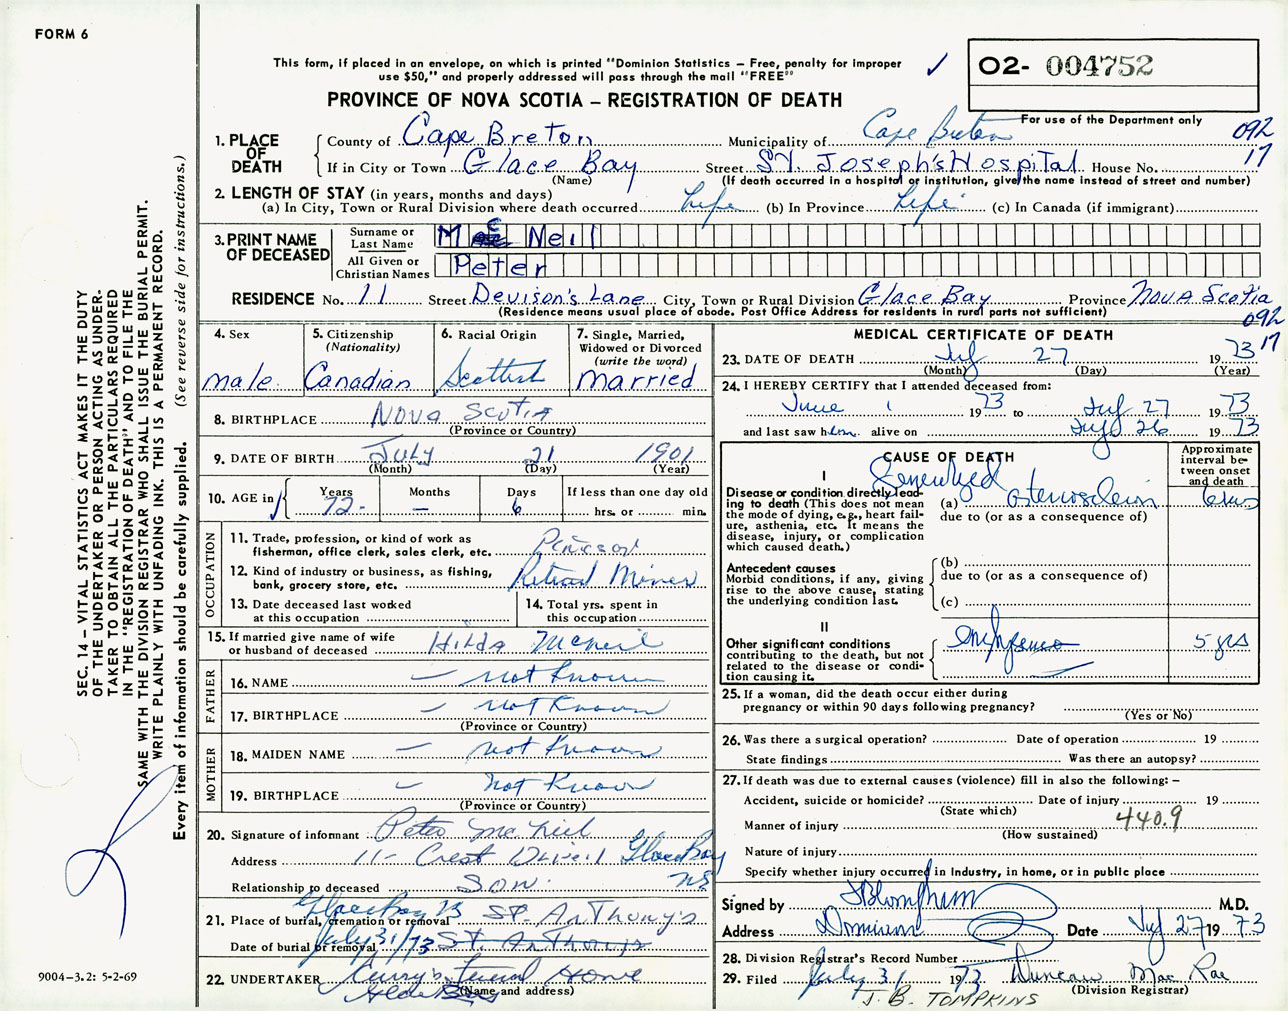 FORM 6
This form, if placed in an envelope, on which is printed "Dominion Statistics – Free, penalty for improper
use $50," and properly addressed will pass through the mail "FREE"
✓
O2- 004752
PROVINCE OF NOVA SCOTIA – REGISTRATION OF DEATH
For use of the Department only
092
17
1. PLACE OF DEATH
County of Cape Breton Municipality of Cape Breton
If in City or Town Glace Bay Street St. Joseph's Hospital House No.
(Name) (If death occurred in a hospital or institution, give the name instead of street and number)
2. LENGTH OF STAY (in years, months and days)
(a) In City, Town or Rural Division where death occurred Life (b) In Province Life (c) In Canada (if immigrant)
3. PRINT NAME OF DECEASED
Surname or Last Name Mc Neil
All Given or Christian Names Peter
RESIDENCE No. 11 Street Devison's Lane City, Town or Rural Division Glace Bay Province Nova Scotia
(Residence means usual place of abode. Post Office Address for residents in rural parts not sufficient)
092
17
4. Sex male
5. Citizenship (Nationality) Canadian
6. Racial Origin Scottish
7. Single, Married, Widowed or Divorced (write the word) Married
8. BIRTHPLACE Nova Scotia
(Province or Country)
9. DATE OF BIRTH July 21 1901
(Month) (Day) (Year)
10. AGE in Years 72 Months – Days 6 If less than one day old hrs. or min.
OCCUPATION
11. Trade, profession, or kind of work as
fisherman, office clerk, sales clerk, etc.
12. Kind of industry or business, as fishing,
bank, grocery store, etc. Retired Miner
13. Date deceased last worked
at this occupation
14. Total yrs. spent in
this occupation
15. If married give name of wife
or husband of deceased Hilda McNeil
FATHER
16. NAME – not known
17. BIRTHPLACE – not known
(Province or Country)
MOTHER
18. MAIDEN NAME – not known
19. BIRTHPLACE – not known
(Province or Country)
20. Signature of informant Peter McNeil
Address 11- Crest Drive Glace Bay
NS
Relationship to deceased Son.
21. Place of burial, cremation or removal Glace Bay St. Anthony's
Date of burial or removal July 31/73 St. Anthony's
22. UNDERTAKER Curry's Funeral Home
Glace Bay
(Name and address)
MEDICAL CERTIFICATE OF DEATH
23. DATE OF DEATH July 27 1973
(Month) (Day) (Year)
24. I HEREBY CERTIFY that I attended deceased from:
June 1 1973 to July 27 1973
and last saw him alive on July 26 1973
CAUSE OF DEATH
Approximate interval between onset and death
I
Disease or condition directly leading to death (This does not mean
the mode of dying, e.g., heart failure, asthenia, etc. It means the
disease, injury, or complication
which caused death.)
(a) Generalized
due to (or as a consequence of)
Antecedent causes
Morbid conditions, if any, giving
rise to the above cause, stating
the underlying condition last.
(b)
due to (or as a consequence of)
(c)
II
Other significant conditions
contributing to the death, but not
related to the disease or condition causing it.
Emphysema 5 yrs
25. If a woman, did the death occur either during
pregnancy or within 90 days following pregnancy?
(Yes or No)
26. Was there a surgical operation? Date of operation 19
State findings Was there an autopsy?
27. If death was due to external causes (violence) fill in also the following: –
Accident, suicide or homicide? Date of injury 19
(State which)
440.9
Manner of injury
(How sustained)
Nature of injury
Specify whether injury occurred in industry, in home, or in public place
Signed by M.D.
Address Dominion Date July 27 1973
28. Division Registrar's Record Number
29. Filed July 31 1973 Duncan MacRae
(Division Registrar)
J. B. TOMPKINS
SEC. 14 – VITAL STATISTICS ACT MAKES IT THE DUTY
OF THE UNDERTAKER OR PERSON ACTING AS UNDER-
TAKER TO OBTAIN ALL THE PARTICULARS REQUIRED
IN THE "REGISTRATION OF DEATH" AND TO FILE THE
SAME WITH THE DIVISION REGISTRAR WHO SHALL ISSUE THE BURIAL PERMIT.
WRITE PLAINLY WITH UNFADING INK. THIS IS A PERMANENT RECORD.
Every item of information should be carefully supplied. (See reverse side for instructions.)
9004-3.2: 5-2-69